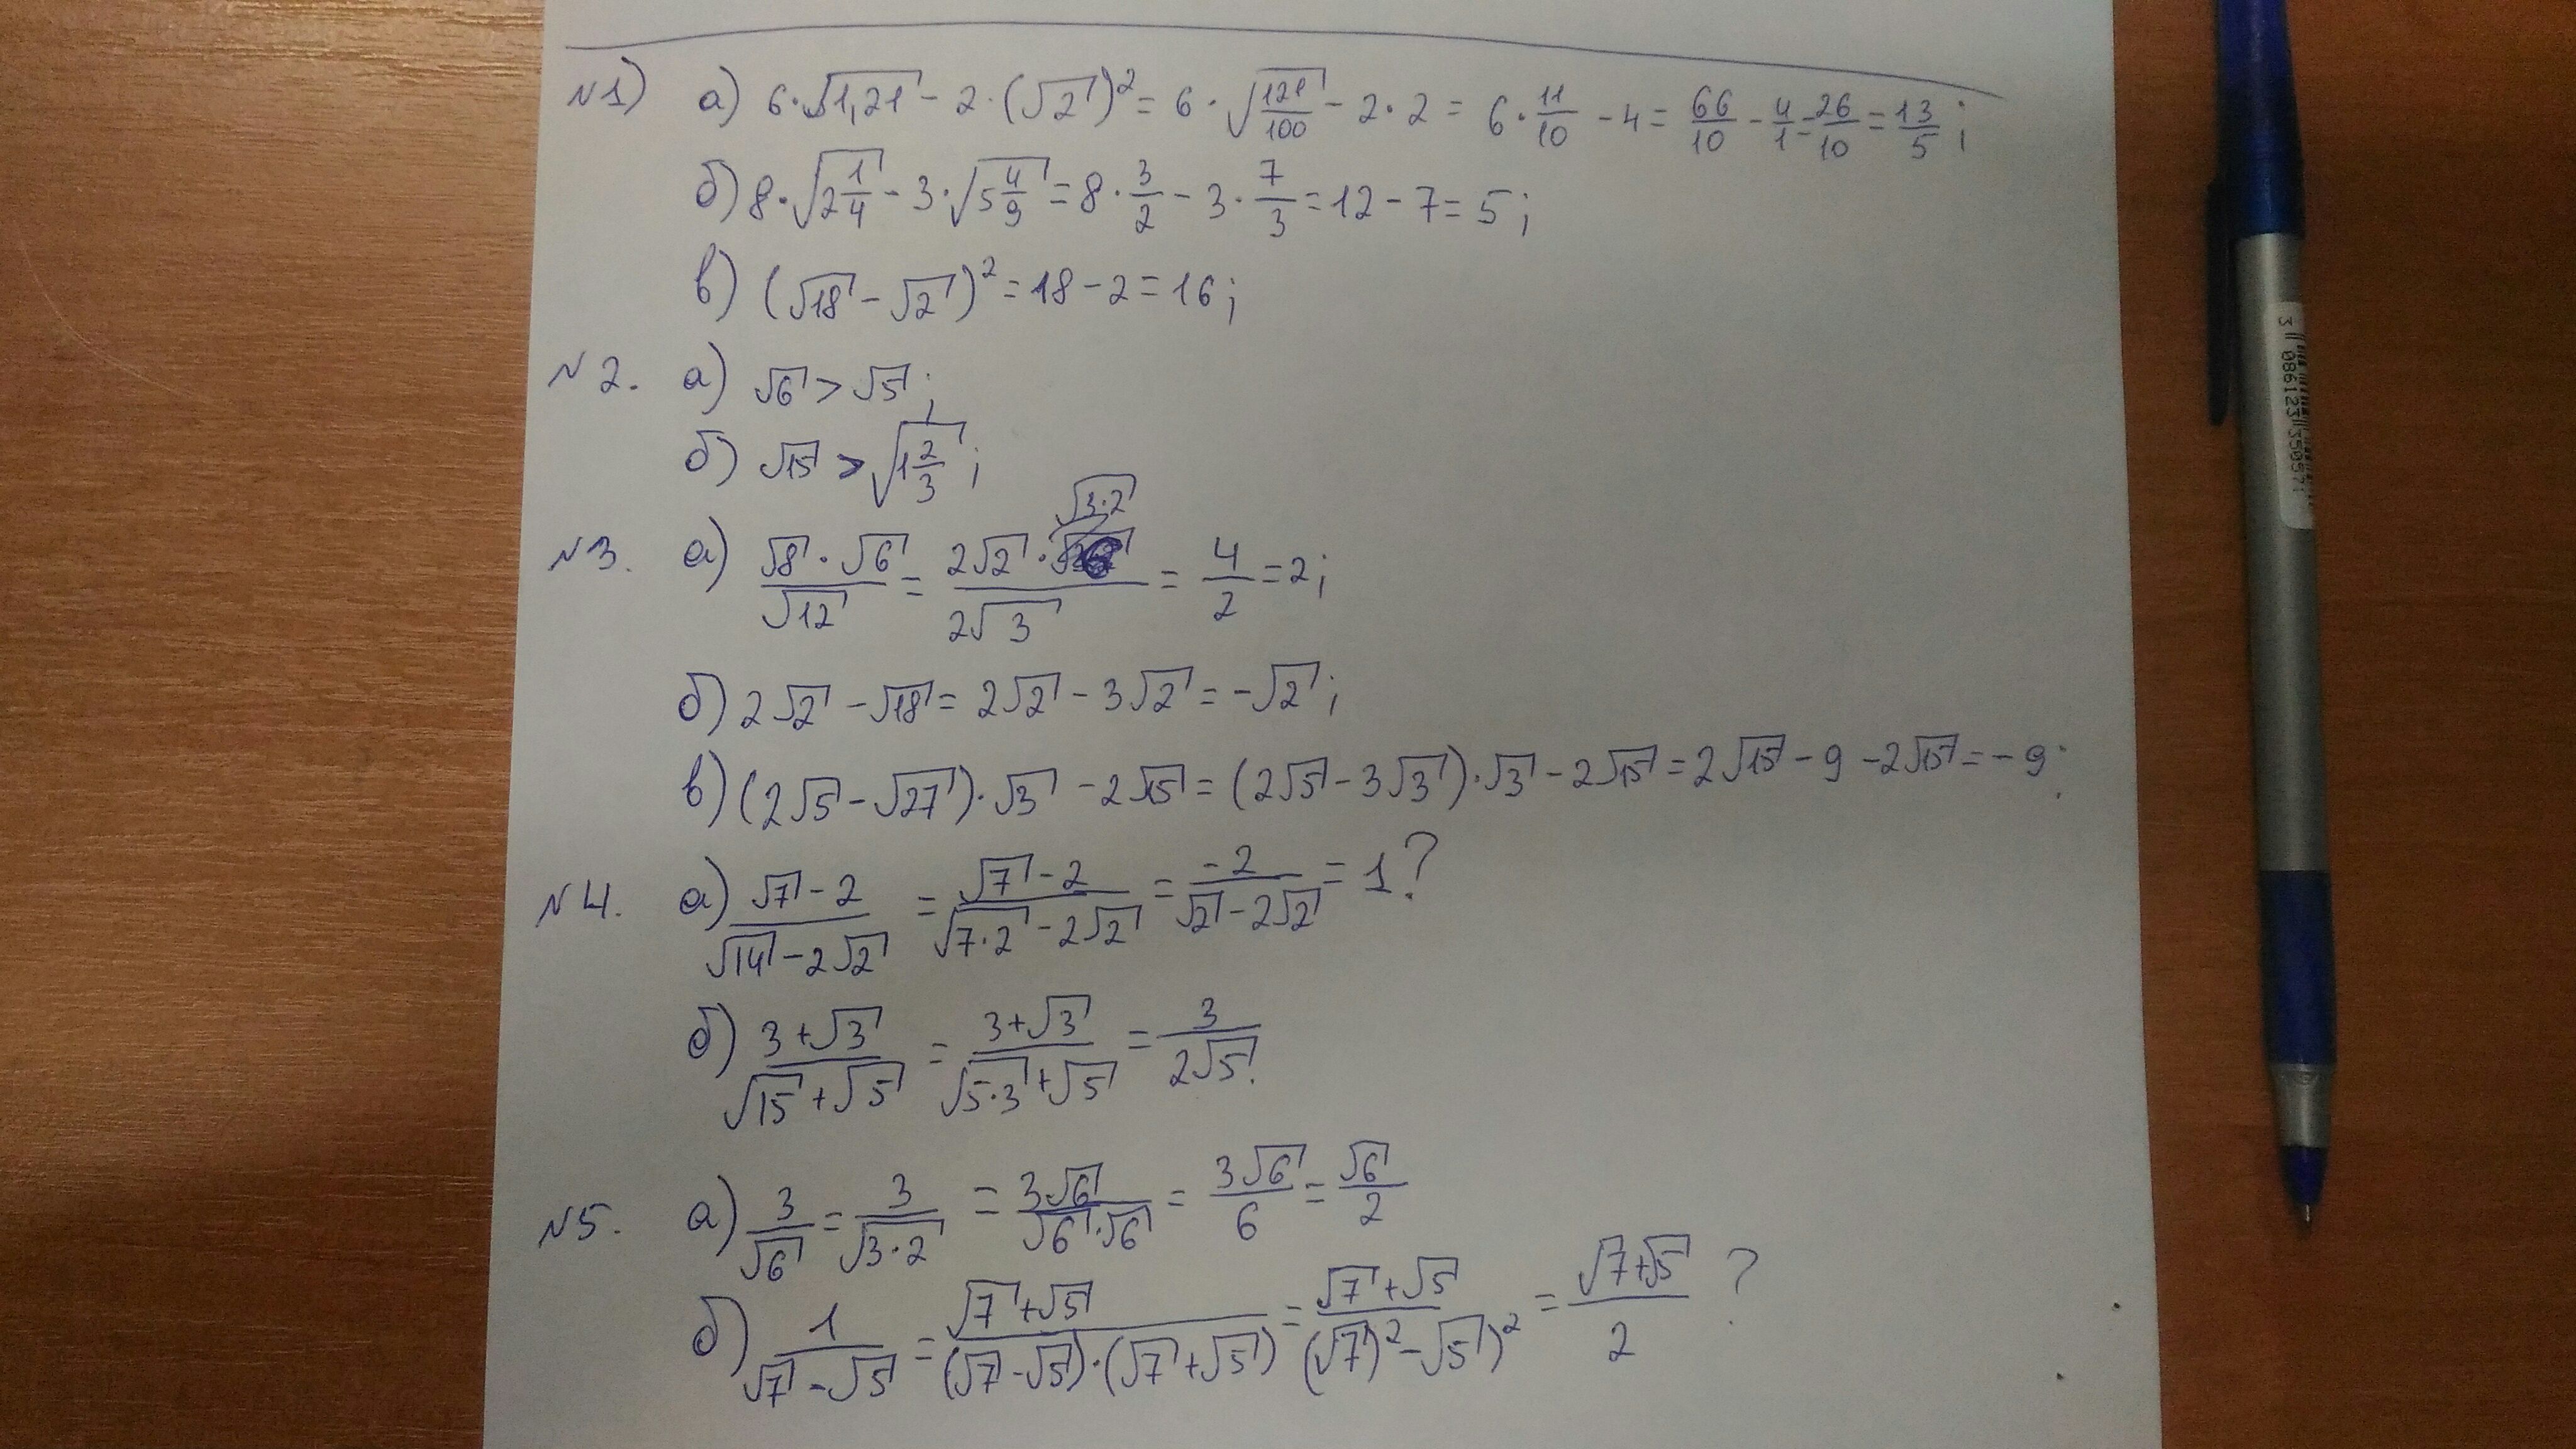 №1) а) 6·√1,21 - 2·(√2)² = 6·√(121/100) - 2·2 = 6·11/10 - 4 = 66/10 - 4/1 = 26/10 = 13/5;
б) 8·√(2 1/4) - 3·√(5 4/9) = 8·3/2 - 3·7/3 = 12 - 7 = 5;
в) (√18 - √2)² = 18 - 2 = 16;
№2. а) √6 > √5;
б) √15 > √(1 2/3);
№3. а) (√8·√6)/√12 = (2√2·√(3·2))/(2√3) = 4/2 = 2;
б) 2√2 - √18 = 2√2 - 3√2 = -√2;
в) (2√5 - √27)·√3 - 2√15 = (2√5 - 3√3)·√3 - 2√15 = 2√15 - 9 - 2√15 = -9;
№4. а) (√7 - 2)/(√14 - 2√2) = (√7 - 2)/(√(7·2) - 2√2) = -2/(√2 - 2√2) = 1?
б) (3 + √3)/(√15 + √5) = (3 + √3)/(√(5·3) + √5) = 3/(2√5).
№5. а) 3/√6 = 3/√(3·2) = 3√6/(√6·√6) = 3√6/6 = √6/2
б) 1/(√7 - √5) = (√7 + √5)/((√7 - √5)·(√7 + √5)) = (√7 + √5)/((√7)² - √5)² = (√7 + √5)/2 ?
3 086123 350571